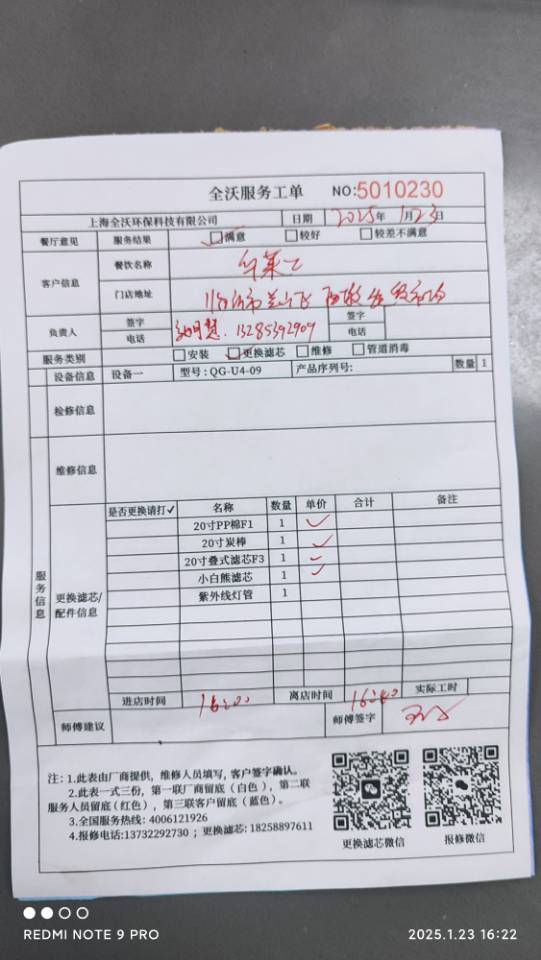 全沃服务工单 NO:5010230
上海全沃环保科技有限公司 日期 2025年1月23日
餐厅意见 服务结果 满意 较好 较差不满意
客户信息 餐饮名称 华莱士
门店地址
负责人 签字 签字
电话 13285392909 电话
服务类别 安装 更换滤芯 维修 管道消毒
设备信息 设备一 型号:QG-U4-09 产品序列号: 数量 1
检修信息
维修信息
服务信息
更换滤芯/配件信息
是否更换请打✓ 名称 数量 单价 合计 备注
20寸PP棉F1 1 ✓
20寸炭棒 1 ✓
20寸叠式滤芯F3 1 ✓
小白熊滤芯 1 ✓
紫外线灯管 1
进店时间 16:00 离店时间 实际工时
师傅建议 师傅签字
注: 1.此表由厂商提供，维修人员填写, 客户签字确认。
2.此表一式三份，第一联厂商留底（白色），第二联
服务人员留底(红色），第三联客户留底（蓝色）。
3.全国服务热线: 4006121926
4.报修电话:13732292730 ; 更换滤芯: 18258897611
更换滤芯微信 报修微信
REDMI NOTE 9 PRO 2025.1.23 16:22